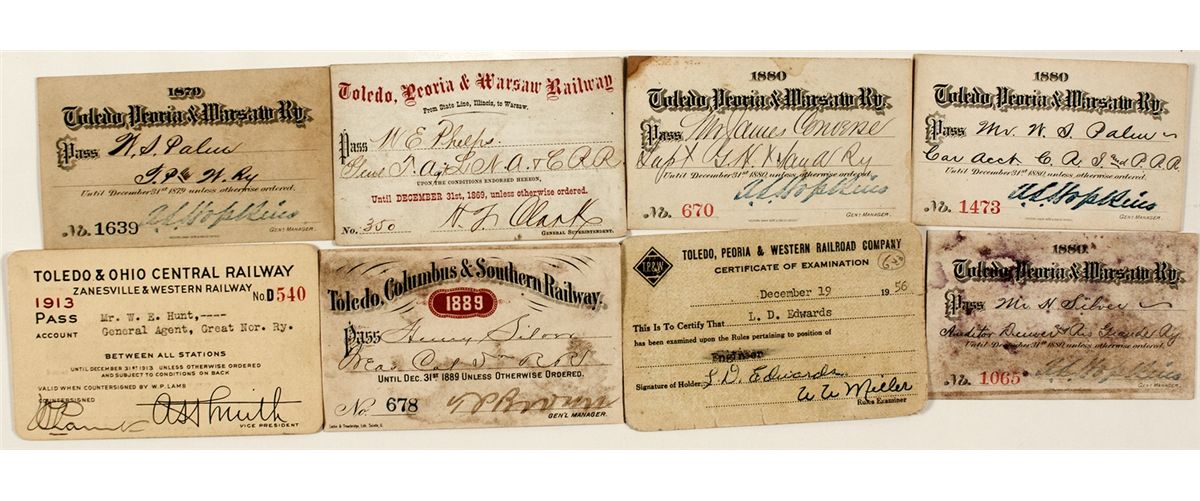 1879
Toledo, Peoria & Warsaw Ry.
Pass W. S. Palmer
T. P. & W. Ry
Until December 31st 1879, unless otherwise ordered.
No. 1639 A. L. Hopkins
GEN'L MANAGER.
Toledo, Peoria & Warsaw Railway
From State Line, Illinois, to Warsaw.
Pass W. E. Phelps
UPON THE CONDITIONS ENDORSED HEREON,
Until DECEMBER 31st, 1869, unless otherwise ordered.
No. 350 H. J. Clark
GENERAL SUPERINTENDENT.
1880
Toledo, Peoria & Warsaw Ry.
Pass Mr James Converse
Until December 31st 1880, unless otherwise ordered.
No. 670 A. L. Hopkins
GEN'L MANAGER.
1880
Toledo, Peoria & Warsaw Ry.
Pass Mr. W. S. Palmer
Car Acct C. R. I. and P. R. R.
Until December 31st 1880, unless otherwise ordered.
No. 1473 A. L. Hopkins
GEN'L MANAGER.
TOLEDO & OHIO CENTRAL RAILWAY
ZANESVILLE & WESTERN RAILWAY
1913 No. D 540
PASS Mr. W. E. Hunt,----
ACCOUNT General Agent, Great Nor. Ry.
BETWEEN ALL STATIONS
UNTIL DECEMBER 31ST 1913 UNLESS OTHERWISE ORDERED
AND SUBJECT TO CONDITIONS ON BACK
VALID WHEN COUNTERSIGNED BY W. P. LAMB
COUNTERSIGNED
A H Smith
VICE PRESIDENT
Toledo, Columbus & Southern Railway.
1889
Pass Henry Silver
UNTIL DEC. 31st 1889 UNLESS OTHERWISE ORDERED.
No. 678 Brown
GEN'L MANAGER.
T.P.&W.
TOLEDO, PEORIA & WESTERN RAILROAD COMPANY
CERTIFICATE OF EXAMINATION
December 19 1956
This Is To Certify That L. D. Edwards
has been examined upon the Rules pertaining to position of
Engineer
Signature of Holder L. D. Edwards
Miller
Rules Examiner
1880
Toledo, Peoria & Warsaw Ry.
Pass Mr. H. Silver
Auditor Denver & Rio Grande Ry
Until December 31st 1880, unless otherwise ordered.
No. 1065 A. L. Hopkins
GEN'L MANAGER.